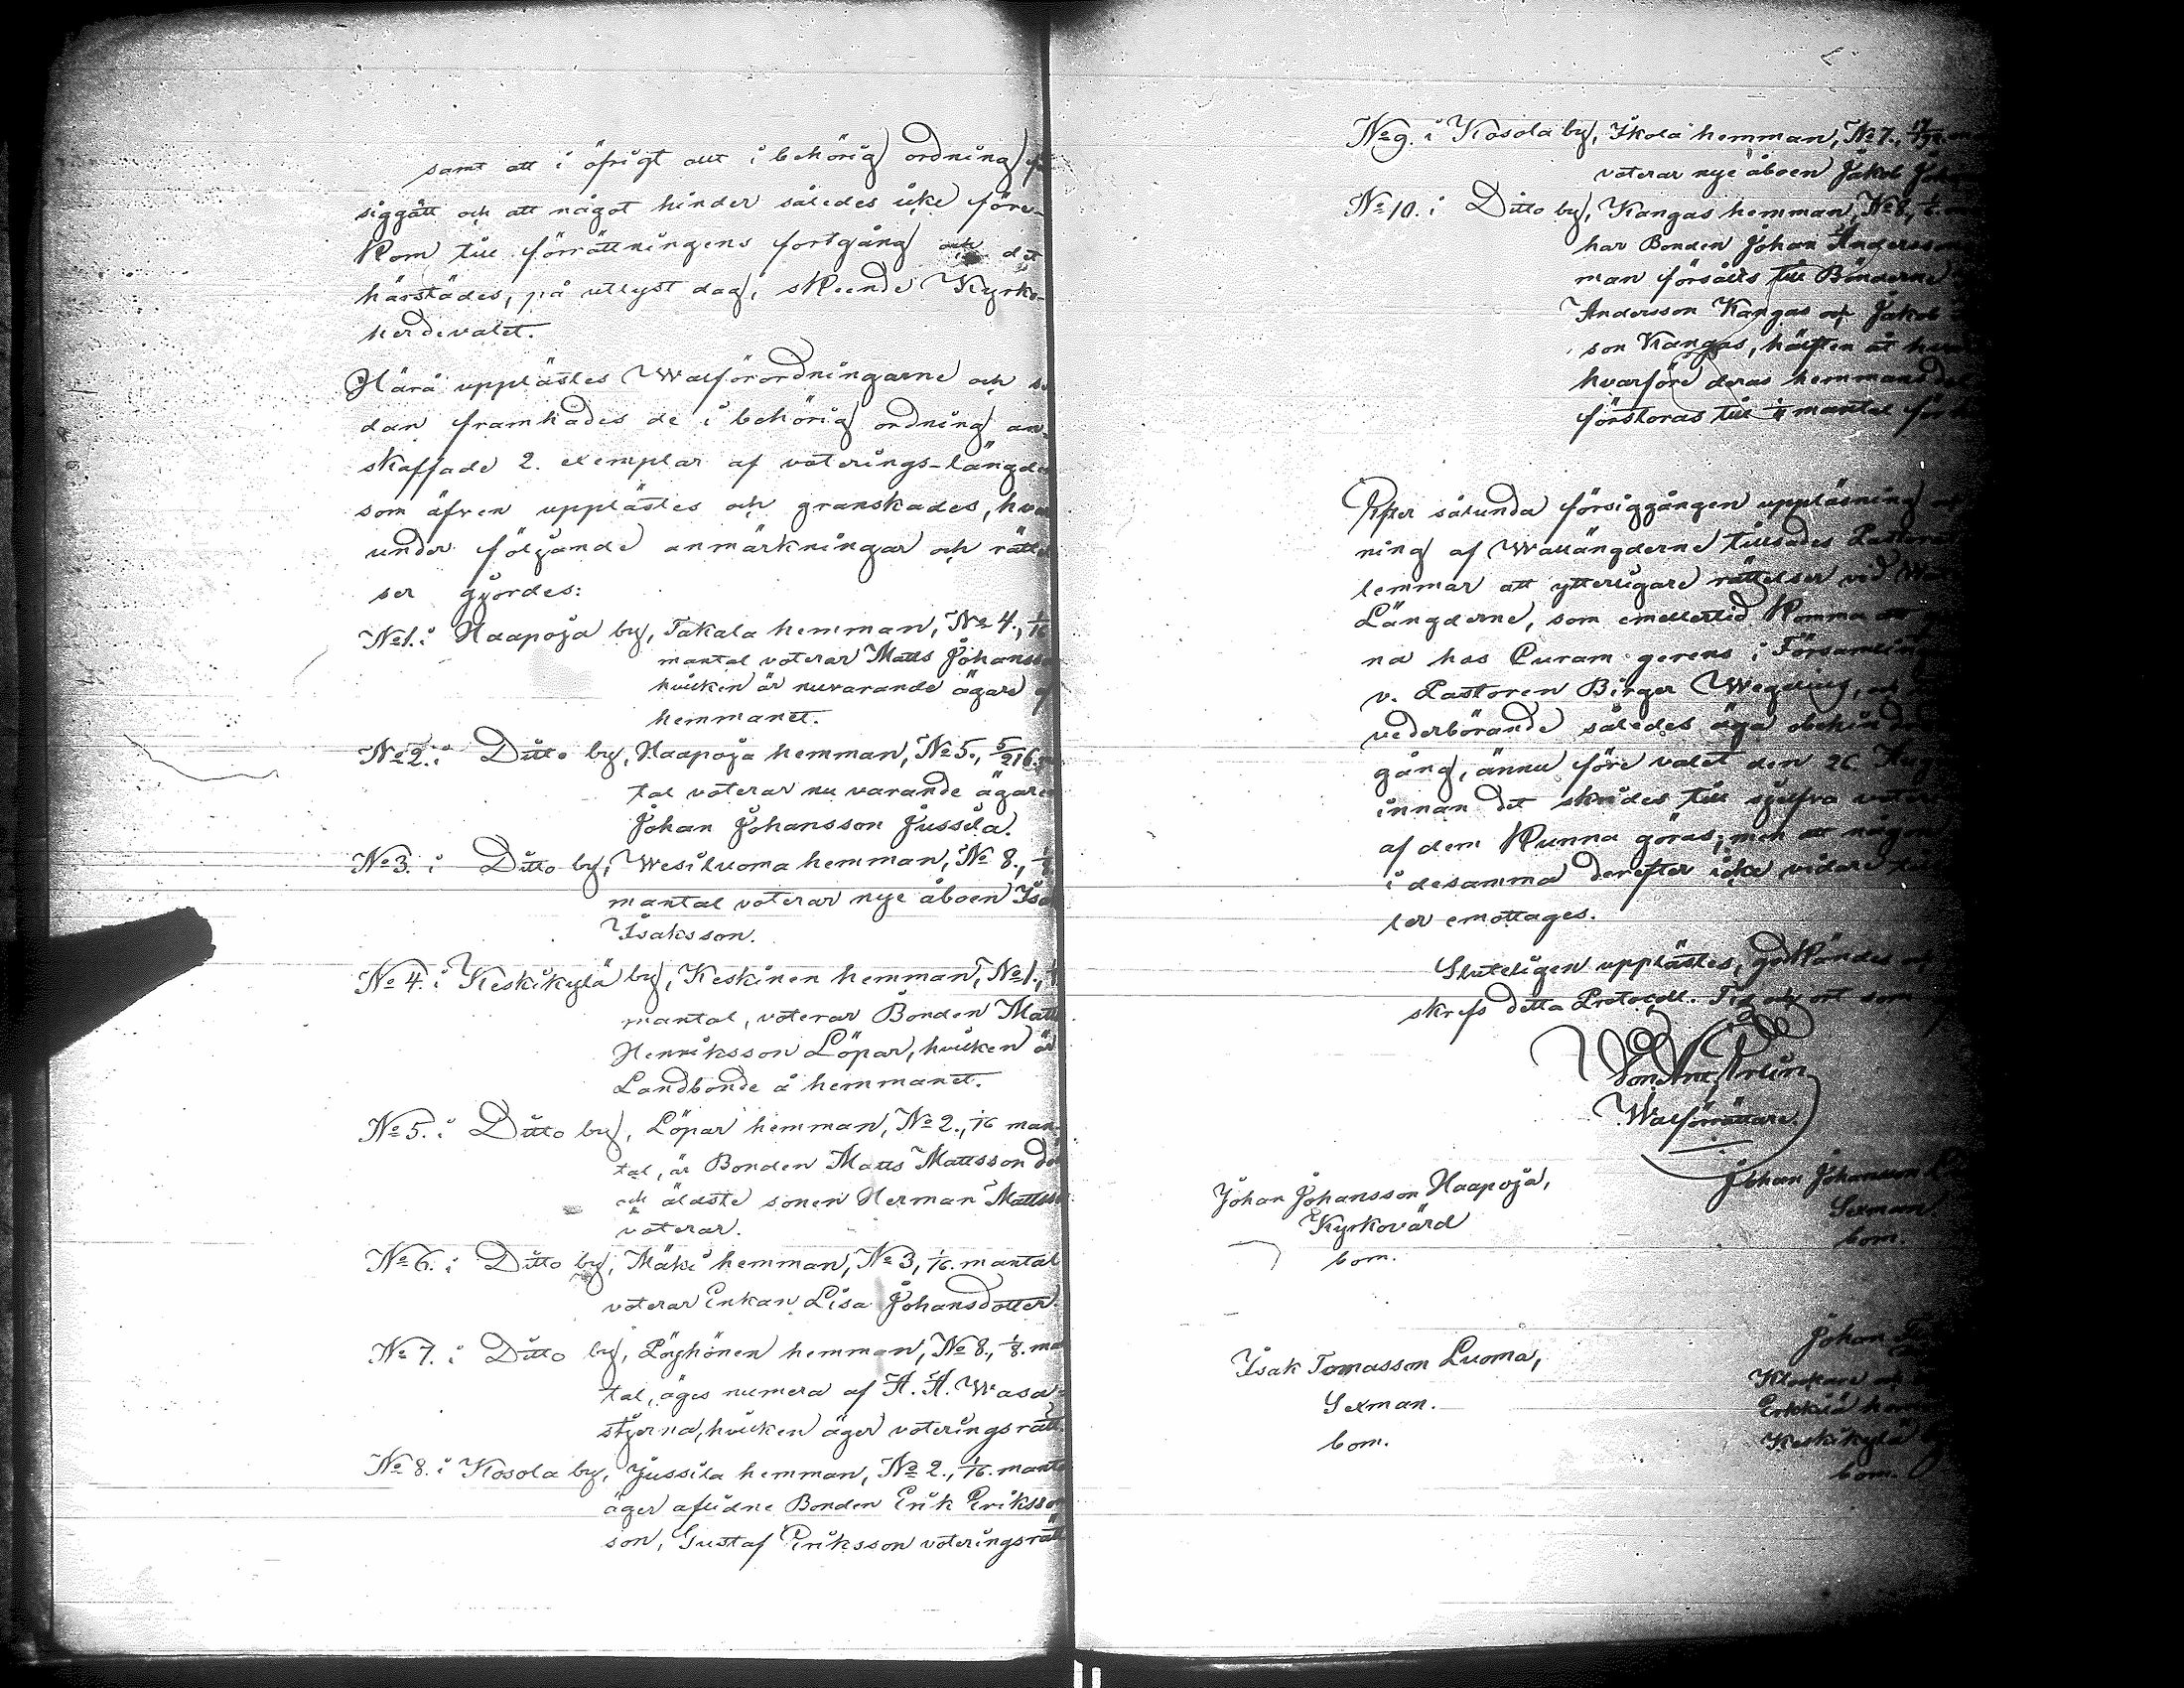 samt att i öfrigt allt i behörig ordning
siggått och att något hinder således icke före-
kom till förrättningens fortgång och det
härstädes, på utlyst dag, skeende Kyrko-
herdevalet.
Härå upplästes Walförordningarne och
dan framhades de i behörig ordning an-
skaffade 2. exemplar af voterings-längde
som äfven upplästes och granskades, hvar
under följande anmärkningar och rättel
ser gjordes:
No1. i Haapoja by, Takala hemman, No 4., 1/16
mantal voterar Matts Johansson
hvilken är nuvarande ägare af
hemmanet.
No2. i Ditto by, Haapoja hemman, No5., 5/216
tal voterar nu varande ägaren
Johan Johansson Jussila.
No3. i Ditto by, Wesiluoma hemman, No 8.,
mantal voterar nye åboen Isak
Isaksson.
No 4. i Keskikylä by, Keskinen hemman, No1.,
mantal, voterar Bonden Matts
Henriksson Löpar, hvilken är
Landbonde å hemmanet.
No5. i Ditto by, Löpar hemman, No2., 1/16 man-
tal, är Bonden Matts Mattsson död
och äldste sonen Herman Mattsson
voterar.
No6. i Ditto by, Mäki hemman, No3, 1/16. mantal
voterar Enkan Lisa Johansdotter.
No 7. i Ditto by, Löyhönen hemman, No 8., 1/8. man
tal, äges numera af A. A. Wasa-
stjerna, hvilken äger voteringsrätt.
No 8. i Kosola by, Jussila hemman, No 2., 1/16. mantal
äger aflidne Bonden Erik Eriksson
son, Gustaf Eriksson voteringsrätt
No9. i Kosola by, Ikola hemman, No7.,
voterar nye åboen Jakob
No10. i Ditto by, Kangas hemman, No8,
har Bonden Johan Andersson
man försålts till Bönderne
Andersson Kangas och Jakob
son Kangas, hälften åt
hvarföre deras hemmans
förstoras till mantal för
Efter sålunda försiggången uppläsning
ning af Wallängderne tillsades
lemmar att ytterligare rättelser vid
Längderne, som emellertid komma att
na hos Curam gerens i Församlingen
v. Pastoren Birger Wegelius, och
vederbörande således äga obehindrad
gång, ännu före valet den 26. Aug
innan det skrides till sjelfva
af dem kunna göras; men att någon
i desamma derefter icke vidare
ler emottages.
Slutligen upplästes, godkändes
skrefs detta Protocoll. Tid och ort som
Walförrättare.
Johan Johansson Haapoja,
Kyrkovärd
bom.
Johan Johansson
Sexman
bom.
Isak Tomasson Luoma,
Sexman.
bom.
Johan
Klockare
Erkkilä
Keskikylä
bom.